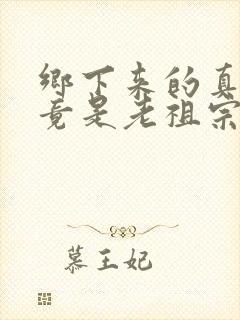 鄉下来的真
竟是老祖宗
慕王妃